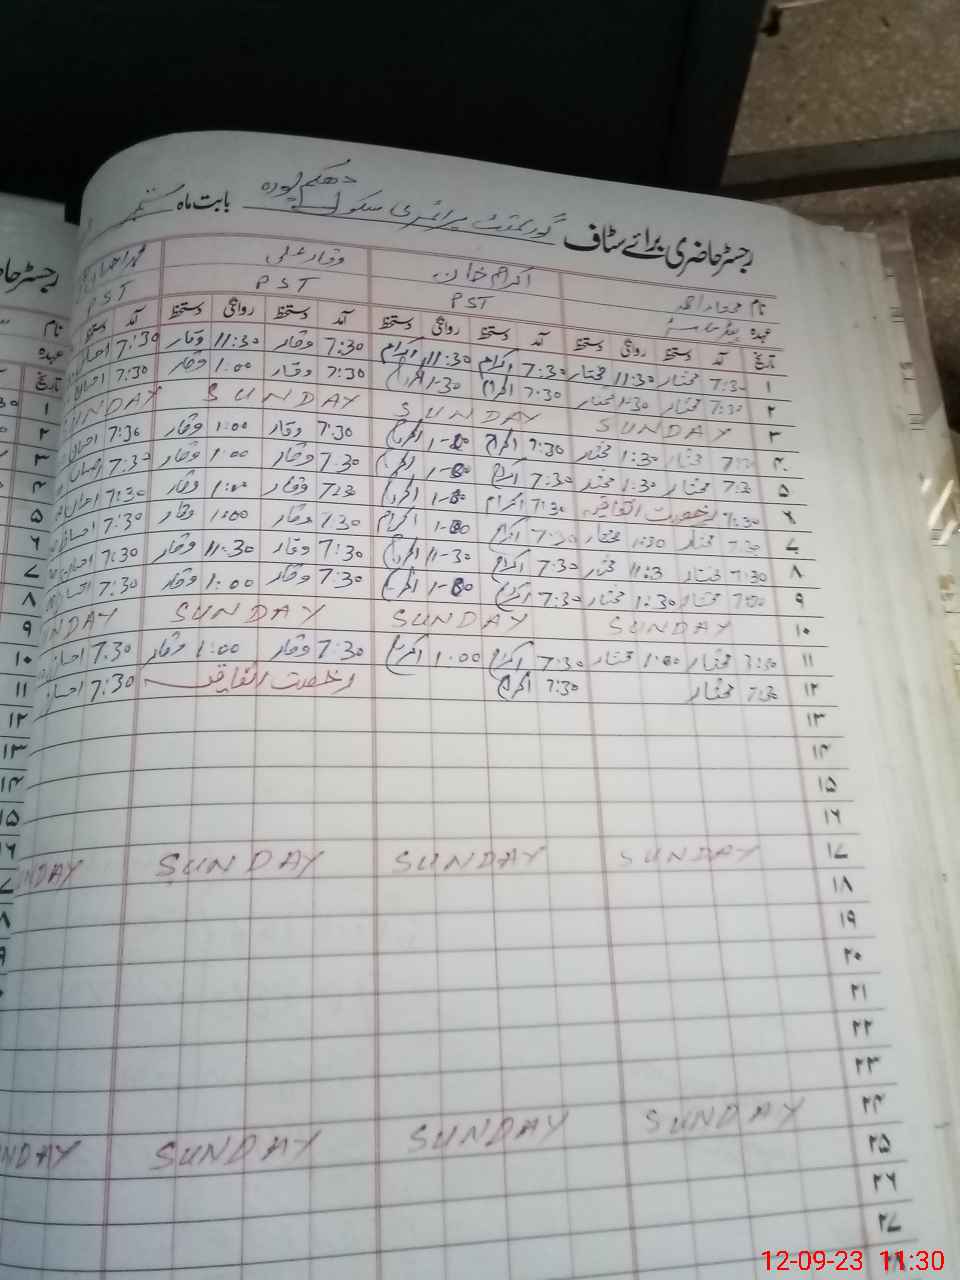 رجسٹر حاضری برائے سٹاف گورنمنٹ پرائمری سکول بابت ماہ ستمبر
نام اکرام خان وقار علی
عہدہ PST PST PST
تاریخ آمد دستخط روانگی دستخط آمد دستخط روانگی دستخط آمد دستخط روانگی دستخط آمد دستخط
۱ 7:30 مختار 11:30 مختار 7:30 اکرام 11:30 اکرام 7:30 وقار 11:30 وقار 7:30
۲ 7:30 مختار 1:30 مختار 7:30 اکرام 1-30 اکرام 7:30 وقار 1:00 وقار 7:30
۳ SUNDAY SUNDAY SUNDAY UNDAY
۴ 7:30 مختار 1:30 مختار 7:30 اکرام اکرام 7:30 وقار 1:00 وقار 7:30
۵ 7:30 مختار 1:30 مختار 7:30 اکرام اکرام 7:30 وقار 1:00 وقار 7:30
۶ 7:30 رخصت اتفاقیہ 7:30 اکرام اکرام 7:30 وقار 1:00 وقار 7:30
۷ 7:30 مختار 1:30 مختار 7:30 اکرام اکرام 7:30 وقار 1:00 وقار 7:30
۸ 7:30 مختار 11:3 مختار 7:30 اکرام 11-30 اکرام 7:30 وقار 11:30 وقار 7:30
۹ مختار 1:30 مختار 7:30 اکرام اکرام 7:30 وقار 1:00 وقار 7:30
۱۰ SUNDAY SUNDAY SUNDAY NDAY
۱۱ 7:30 مختار 1:00 مختار 7:30 اکرام 1:00 اکرام 7:30 وقار 1:00 وقار 7:30
۱۲ 7:30 مختار 7:30 اکرام رخصت اتفاقیہ 7:30
۱۳
۱۴
۱۵
۱۶
۱۷ SUNDAY SUNDAY SUNDAY NDAY
۱۸
۱۹
۲۰
۲۱
۲۲
۲۳
۲۴ SUNDAY SUNDAY SUNDAY NDAY
۲۵
۲۶
۲۷
۲۸
12-09-23 11:30